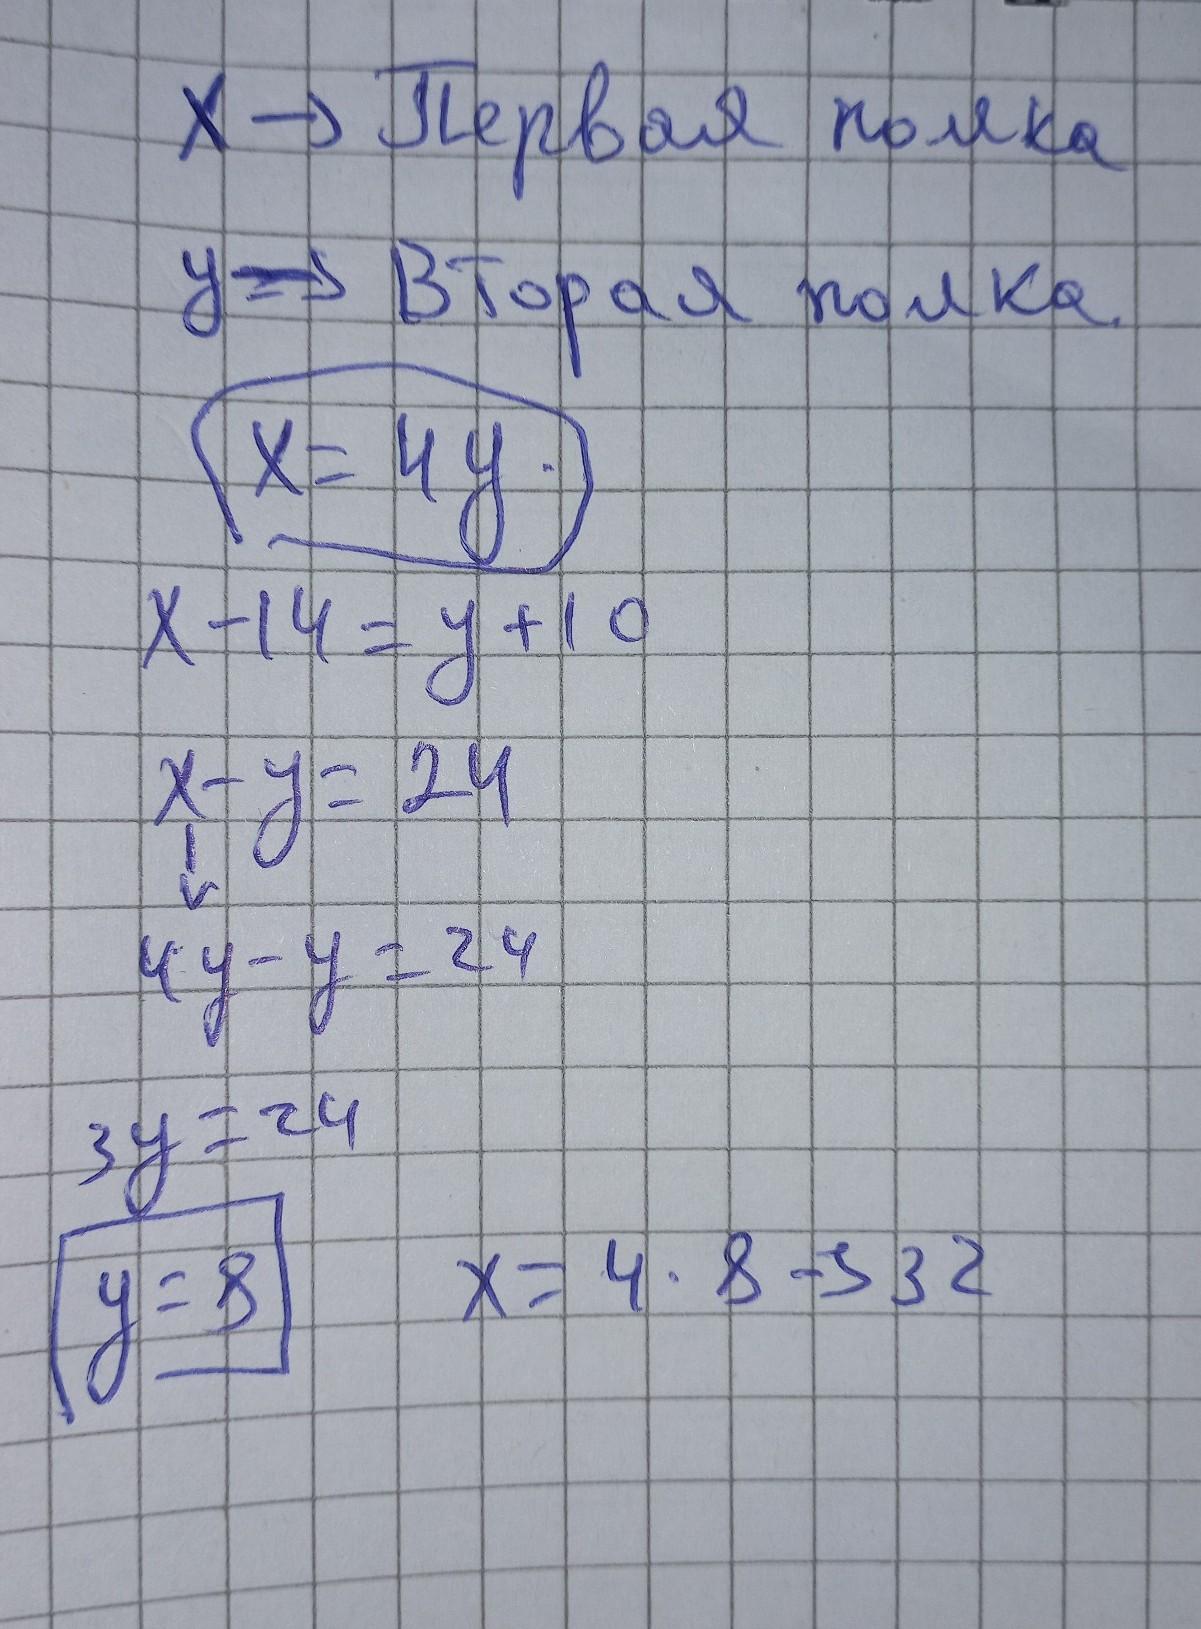 x → Первая полка
y → Вторая полка.
x = 4y.
x - 14 = y + 10
x - y = 24
↓
4y - y = 24
3y = 24
y = 8 x = 4 · 8 → 32